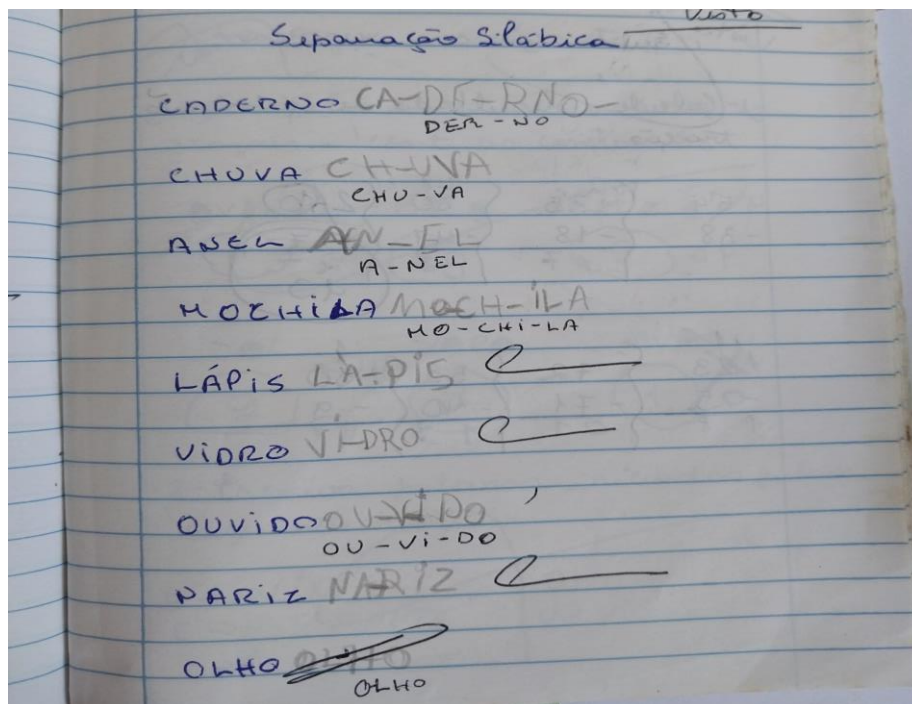 Visto
Separação Silábica
CADERNO CA-DE-RNO-
DER-NO
CHUVA CH-UVA
CHU-VA
ANEL AN-EL
A-NEL
MOCHiLA MOCH-iLA
MO-CHi-LA
LÁPiS LÁ-PiS
ViDRO Vi-DRO
OUViDO OU-Vi DO
OU-Vi-DO
NARiZ NA-RiZ
OLHO OLHO
OLHO